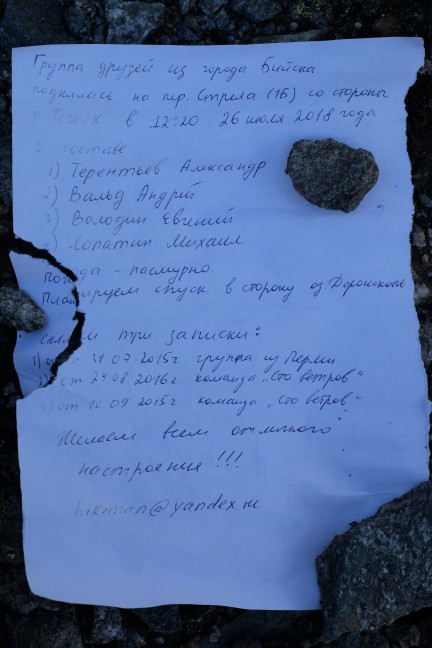 Группа друзей из города Бийска
поднялась на пер. Стрела (1Б) со стороны
в 12:20 26 июля 2018 года
в составе
1) Терентьев Александр
2) Вальд Андрей
3) Володин Евгений
4) Лопатин Михаил
погода - пасмурно.
Планируем спуск в сторону оз. Дарашколь
сняли три записки:
1) от 31.07.2015г группа из Перми
2) от 24.08.2016г команда „Сто ветров"
3) от 10.09 2015г команда „Сто ветров"
Желаем всем отличного
настроения !!!